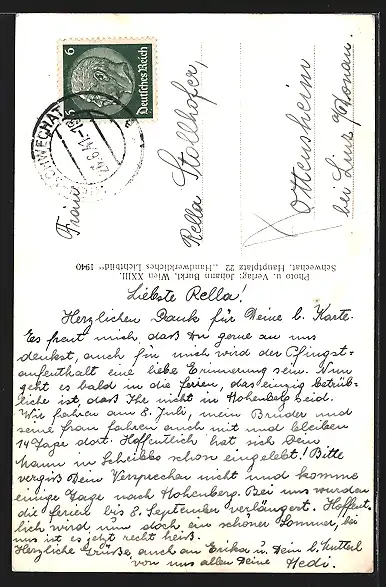 6
Deutsches Reich
6
SCHWECHAT
24.6.41
Rella Stollhofer,
Ottensheim
bei Linz a/Donau.
Photo u. Verlag: Johann Burkl, Wien XXIII.
Schwechat, Hauptplatz 22 „Handwerkliches Lichtbild“ 1940
Liebste Rella!
Herzlichen Dank für Deine l. Karte.
Es freut mich, daß Du gerne an uns
denkst, auch für mich wird der Pfingst=
aufenthalt eine liebe Erinnerung sein. Nun
geht es bald in die Ferien, das einzig betrüb=
liche ist, daß Ihr nicht in Hohenberg seid.
Wir fahren am 8. Juli, mein Bruder und
seine Frau fahren auch mit und bleiben
14 Tage dort. Hoffentlich hat sich Dein
Mann in Scheibbs schon eingelebt! Bitte
vergiß Dein Versprechen nicht und komme
einige Tage nach Hohenberg. Bei uns wurden
die Ferien bis 8. September verlängert. Hoffent=
lich wird nun doch ein schöner Sommer, bei
uns ist es jetzt recht heiß.
Herzliche Grüße, auch an Erika u. Dein l. Mutterl
von uns allen Deine Hedi.